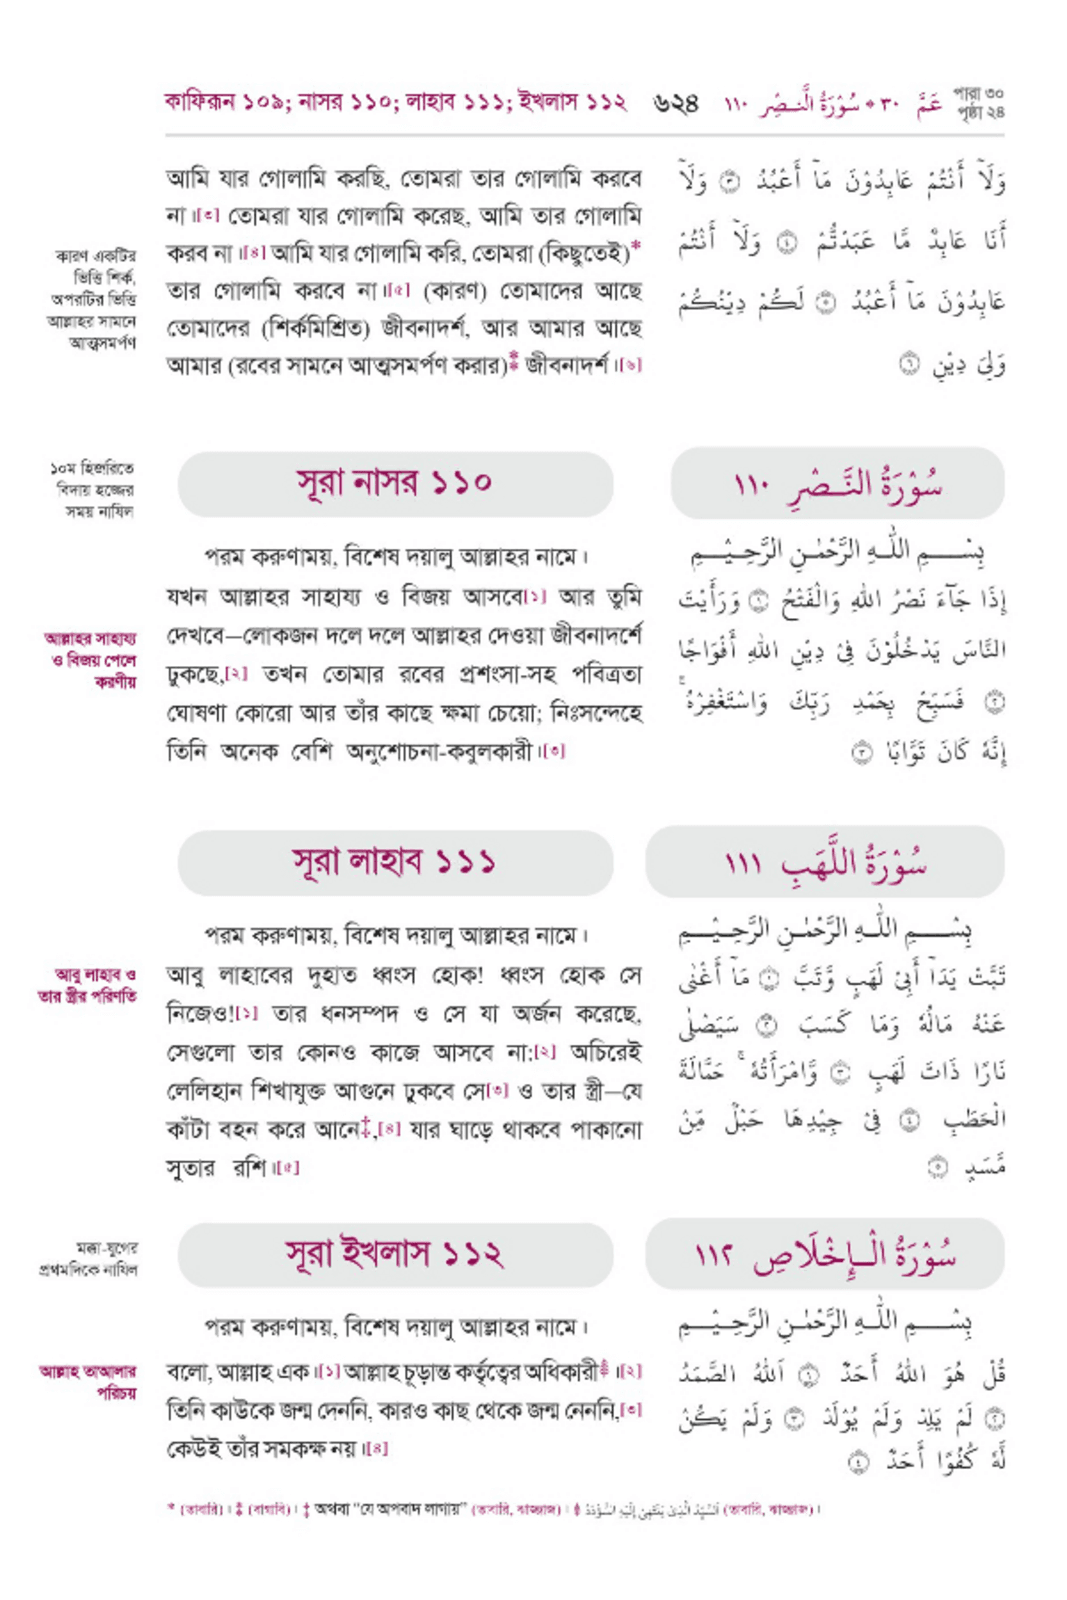 কাফিরূন ১০৯; নাসর ১১০; লাহাব ১১১; ইখলাস ১১২ ৬২৪ سُوْرَةُ النَّصْرِ ١١٠ * عَمَّ ٣٠ পারা ৩০
পৃষ্ঠা ২৪
আমি যার গোলামি করছি, তোমরা তার গোলামি করবে
না।[৩] তোমরা যার গোলামি করেছ, আমি তার গোলামি
করব না।[৪] আমি যার গোলামি করি, তোমরা (কিছুতেই)*
তার গোলামি করবে না।[৫] (কারণ) তোমাদের আছে
তোমাদের (শির্কমিশ্রিত) জীবনাদর্শ, আর আমার আছে
আমার (রবের সামনে আত্মসমর্পণ করার)⁑ জীবনাদর্শ।[৬]
কারণ একটির
ভিত্তি শির্ক,
অপরটির ভিত্তি
আল্লাহর সামনে
আত্মসমর্পণ
وَلَآ أَنْتُمْ عَابِدُوْنَ مَآ أَعْبُدُ ۝٣ وَلَآ
أَنَا عَابِدٌ مَّا عَبَدْتُّمْ ۝٤ وَلَآ أَنْتُمْ
عَابِدُوْنَ مَآ أَعْبُدُ ۝٥ لَكُمْ دِيْنُكُمْ
وَلِيَ دِيْنِ ۝٦
১০ম হিজরিতে
বিদায় হজ্জের
সময় নাযিল
সূরা নাসর ১১০
سُوْرَةُ النَّصْرِ ١١٠
পরম করুণাময়, বিশেষ দয়ালু আল্লাহর নামে।
যখন আল্লাহর সাহায্য ও বিজয় আসবে[১] আর তুমি
দেখবে—লোকজন দলে দলে আল্লাহর দেওয়া জীবনাদর্শে
ঢুকছে,[২] তখন তোমার রবের প্রশংসা-সহ পবিত্রতা
ঘোষণা কোরো আর তাঁর কাছে ক্ষমা চেয়ো; নিঃসন্দেহে
তিনি অনেক বেশি অনুশোচনা-কবুলকারী।[৩]
আল্লাহর সাহায্য
ও বিজয় পেলে
করণীয়
بِسْمِ اللّٰهِ الرَّحْمٰنِ الرَّحِيْمِ
إِذَا جَآءَ نَصْرُ اللهِ وَالْفَتْحُ ۝١ وَرَأَيْتَ
النَّاسَ يَدْخُلُوْنَ فِيْ دِيْنِ اللهِ أَفْوَاجًا
۝٢ فَسَبِّحْ بِحَمْدِ رَبِّكَ وَاسْتَغْفِرْهُ ۚ
إِنَّهُ كَانَ تَوَّابًا ۝٣
সূরা লাহাব ১১১
سُوْرَةُ اللَّهَبِ ١١١
পরম করুণাময়, বিশেষ দয়ালু আল্লাহর নামে।
আবু লাহাবের দুহাত ধ্বংস হোক! ধ্বংস হোক সে
নিজেও![১] তার ধনসম্পদ ও সে যা অর্জন করেছে,
সেগুলো তার কোনও কাজে আসবে না:[২] অচিরেই
লেলিহান শিখাযুক্ত আগুনে ঢুকবে সে[৩] ও তার স্ত্রী—যে
কাঁটা বহন করে আনে‡,[৪] যার ঘাড়ে থাকবে পাকানো
সুতার রশি।[৫]
আবু লাহাব ও
তার স্ত্রীর পরিণতি
بِسْمِ اللّٰهِ الرَّحْمٰنِ الرَّحِيْمِ
تَبَّتْ يَدَآ أَبِيْ لَهَبٍ وَّتَبَّ ۝١ مَآ أَغْنٰى
عَنْهُ مَالُهُ وَمَا كَسَبَ ۝٢ سَيَصْلٰى
نَارًا ذَاتَ لَهَبٍ ۝٣ وَّامْرَأَتُهُ ۚ حَمَّالَةَ
الْحَطَبِ ۝٤ فِيْ جِيْدِهَا حَبْلٌ مِّنْ
مَّسَدٍ ۝٥
মক্কা-যুগের
প্রথমদিকে নাযিল
সূরা ইখলাস ১১২
سُوْرَةُ الْإِخْلَاصِ ١١٢
পরম করুণাময়, বিশেষ দয়ালু আল্লাহর নামে।
বলো, আল্লাহ এক।[১] আল্লাহ চূড়ান্ত কর্তৃত্বের অধিকারী⁂।[২]
তিনি কাউকে জন্ম দেননি, কারও কাছ থেকে জন্ম নেননি,[৩]
কেউই তাঁর সমকক্ষ নয়।[৪]
আল্লাহ তাআলার
পরিচয়
بِسْمِ اللّٰهِ الرَّحْمٰنِ الرَّحِيْمِ
قُلْ هُوَ اللهُ أَحَدٌ ۝١ اَللهُ الصَّمَدُ
۝٢ لَمْ يَلِدْ وَلَمْ يُوْلَدْ ۝٣ وَلَمْ يَكُنْ
لَّهُ كُفُوًا أَحَدٌ ۝٤
* (তাবারি)। ⁑ (বাগাবি)। ‡ অথবা “যে অপবাদ লাগায়” (তাবারি, যাজ্জাজ)। ⁂ اَلسَّيِّدُ الَّذِيْ يَنْتَهِيْ إِلَيْهِ السُّؤْدَدُ (তাবারি, যাজ্জাজ)।